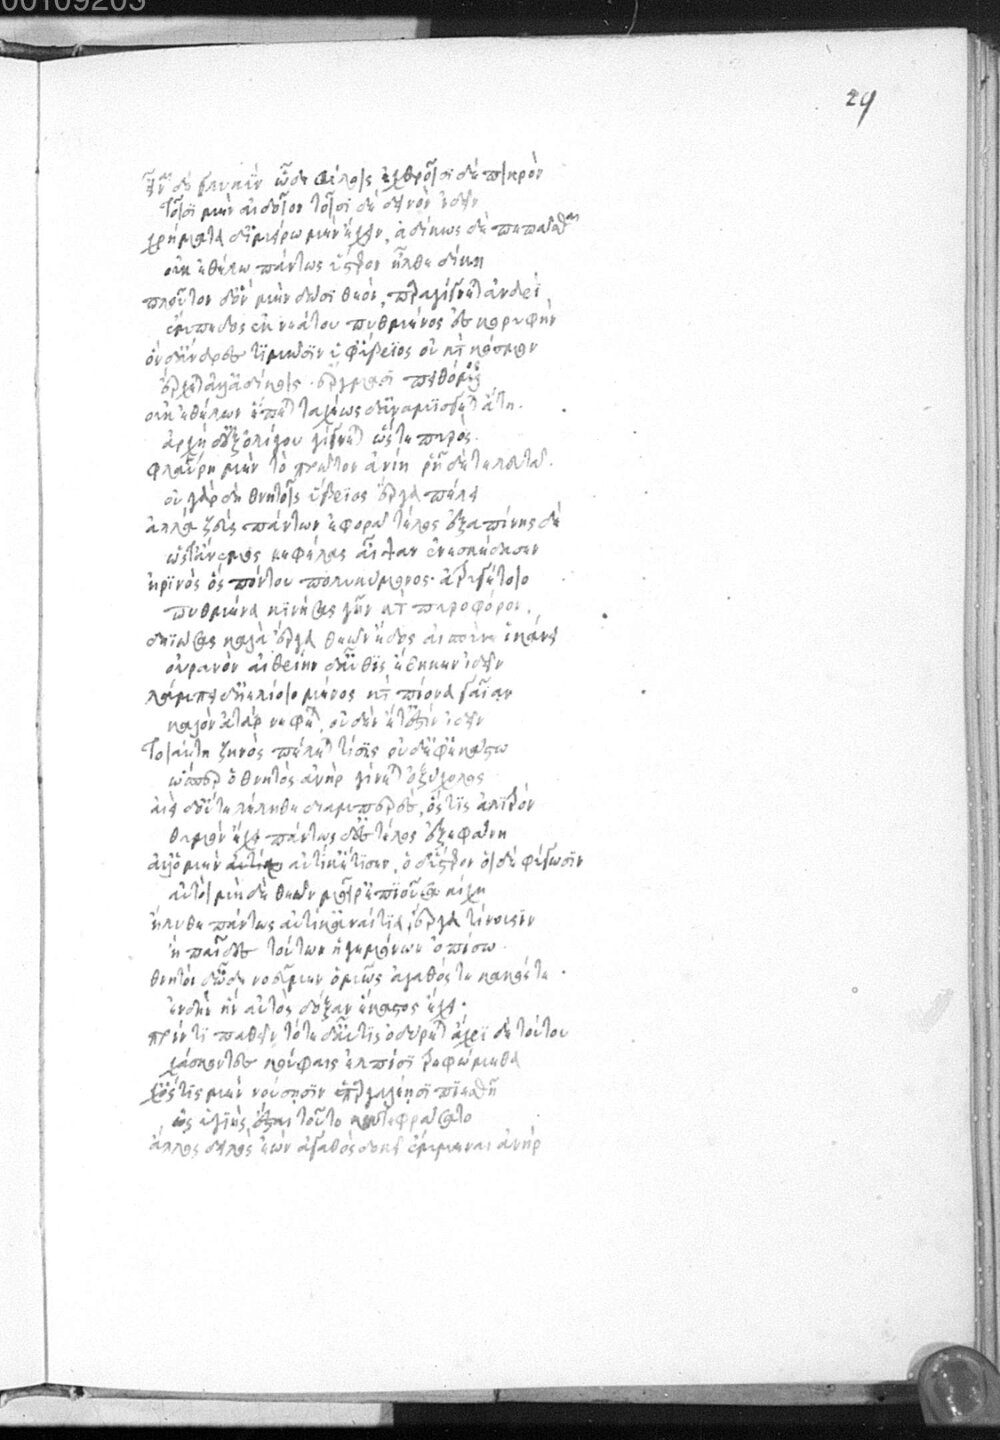 00109203
29
εἶναι δὲ γλυκὺν ὧδε φίλοις ἐχθροῖσι δὲ πικρὸν
τοῖσι μὲν αἰδοῖον τοῖσι δὲ δεινὸν ἰδεῖν
χρήματα δ' ἱμείρω μὲν ἔχειν, ἀδίκως δὲ πεπᾶσθαι
οὐκ ἐθέλω πάντως ὕστερον ἦλθε δίκη
πλοῦτον δ' ὃν μὲν δῶσι θεοὶ, παραγίγνεται ἀνδρὶ
ἔμπεδος ἐκ νεάτου πυθμένος ἐς κορυφὴν
ὃν δ' ἄνδρες τιμῶσιν ὑφ' ὕβριος οὐ κατὰ κόσμον
ἔρχεται ἀλλ' ἀδίκοις ἔργμασι πειθόμενος
οὐκ ἐθέλων ἕπεται ταχέως δ' ἀναμίσγεται ἄτη.
ἀρχὴ δ' ἐξ ὀλίγου γίγνεται ὥστε πυρὸς.
φλαύρη μὲν τὸ πρῶτον ἀνίη δὲ τελευτᾶ.
οὐ γὰρ δὴ θνητοῖς ὕβριος ἔργα πέλει
ἀλλὰ ζεὺς πάντων ἐφορᾶ τέλος ἐξαπίνης δὲ
ὥστ' ἄνεμος νεφέλας αἶψαν ἐνεσκέδασεν
ἠρινὸς ὃς πόντου πολυκύμονος ἀτρυγέτοιο
πυθμένα κινήσας γῆν κατὰ πυροφόρον,
δηώσας καλὰ ἔργα θεῶν ἕδος αἰπὺν ἱκάνει
οὐρανὸν αἰθρίην δ' αὖθις ἔθηκεν ἰδεῖν
λάμπει δ' ἠελίοιο μένος κατὰ πίονα γαῖαν
καλὸν ἀτὰρ νεφέων οὐδὲν ἔτ' ἐστὶν ἰδεῖν
τοιαύτη ζηνὸς πέλεται τίσις οὐδ' ἐφ' ἑκάστω
ὥσπερ ὁ θνητὸς ἀνὴρ γίνεται ὀξύχολος
αἰεὶ δ' οὔτε λέληθε διαμπερὲς, ὅστις ἀλιτρὸν
θυμὸν ἔχει πάντως δ' ἐς τέλος ἐξεφάνη
ἀλλ' ὁ μὲν αὐτίκ' ἔτισεν, ὁ δ' ὕστερον οἱ δὲ φύγωσιν
αὐτοὶ μὴ δὲ θεῶν μοῖρ' ἐπιοῦσα κίχη
ἤλυθε πάντως αὐτίκ' ἀναίτια, ἔργα τίνουσιν
ἢ παῖδες τούτων ἡγεμόνων ὀπίσω.
θνητοὶ δ' ὧδε νοεῦμεν ὁμῶς ἀγαθός τε κακός τε.
ἐνδὴν ἣν αὐτὸς δόξαν ἕκαστος ἔχει.
πρίν τι παθεῖν τότε δ' αὖτις ὀδύρεται ἄχρι δὲ τούτου
χάσκοντες κούφαις ἐλπίσι τερφώμεθα
χὥστις μὲν νούσησιν ὑπ' ἀργαλέησι πιεσθῆ
ὡς ὑγιὴς ἔσται τοῦτο κατεφράσατο
ἄλλος δειλὸς ἐὼν ἀγαθὸς δοκεῖ ἔμμεναι ἀνὴρ